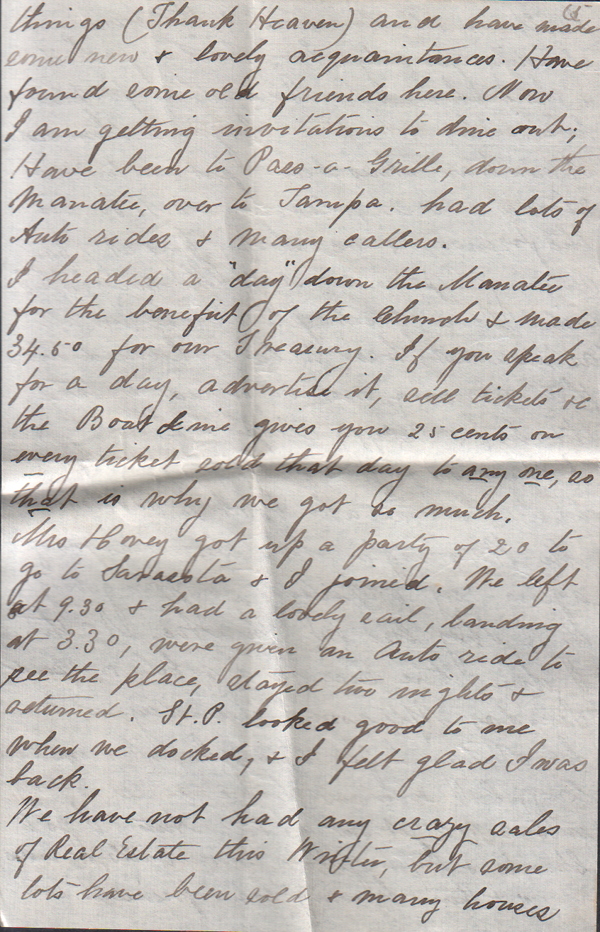 things (Thank Heaven) and have made
some new & lovely acquaintances. Have
found some old friends here. Now
I am getting invitations to dine out;
Have been to Pass-a-Grille, down the
Manatee, over to Tampa. had lots of
Auto rides & many callers.
I headed a "day" down the Manatee
for the benefit of the Church & made
34.50 for our Treasury. If you speak
for a day, advertise it, sell tickets &c
the Boat Line gives you 25 cents on
every ticket sold that day to any one, so
that is why we got so much.
Mrs Hovey got up a party of 20 to
go to Sarasota & I joined. We left
at 9.30 & had a lovely sail, landing
at 3.30, were given an Auto ride to
see the place, stayed two nights &
returned. St. P. looked good to me
when we docked, & I felt glad I was
back.
We have not had any crazy sales
of Real Estate this Winter, but some
lots have been sold & many houses